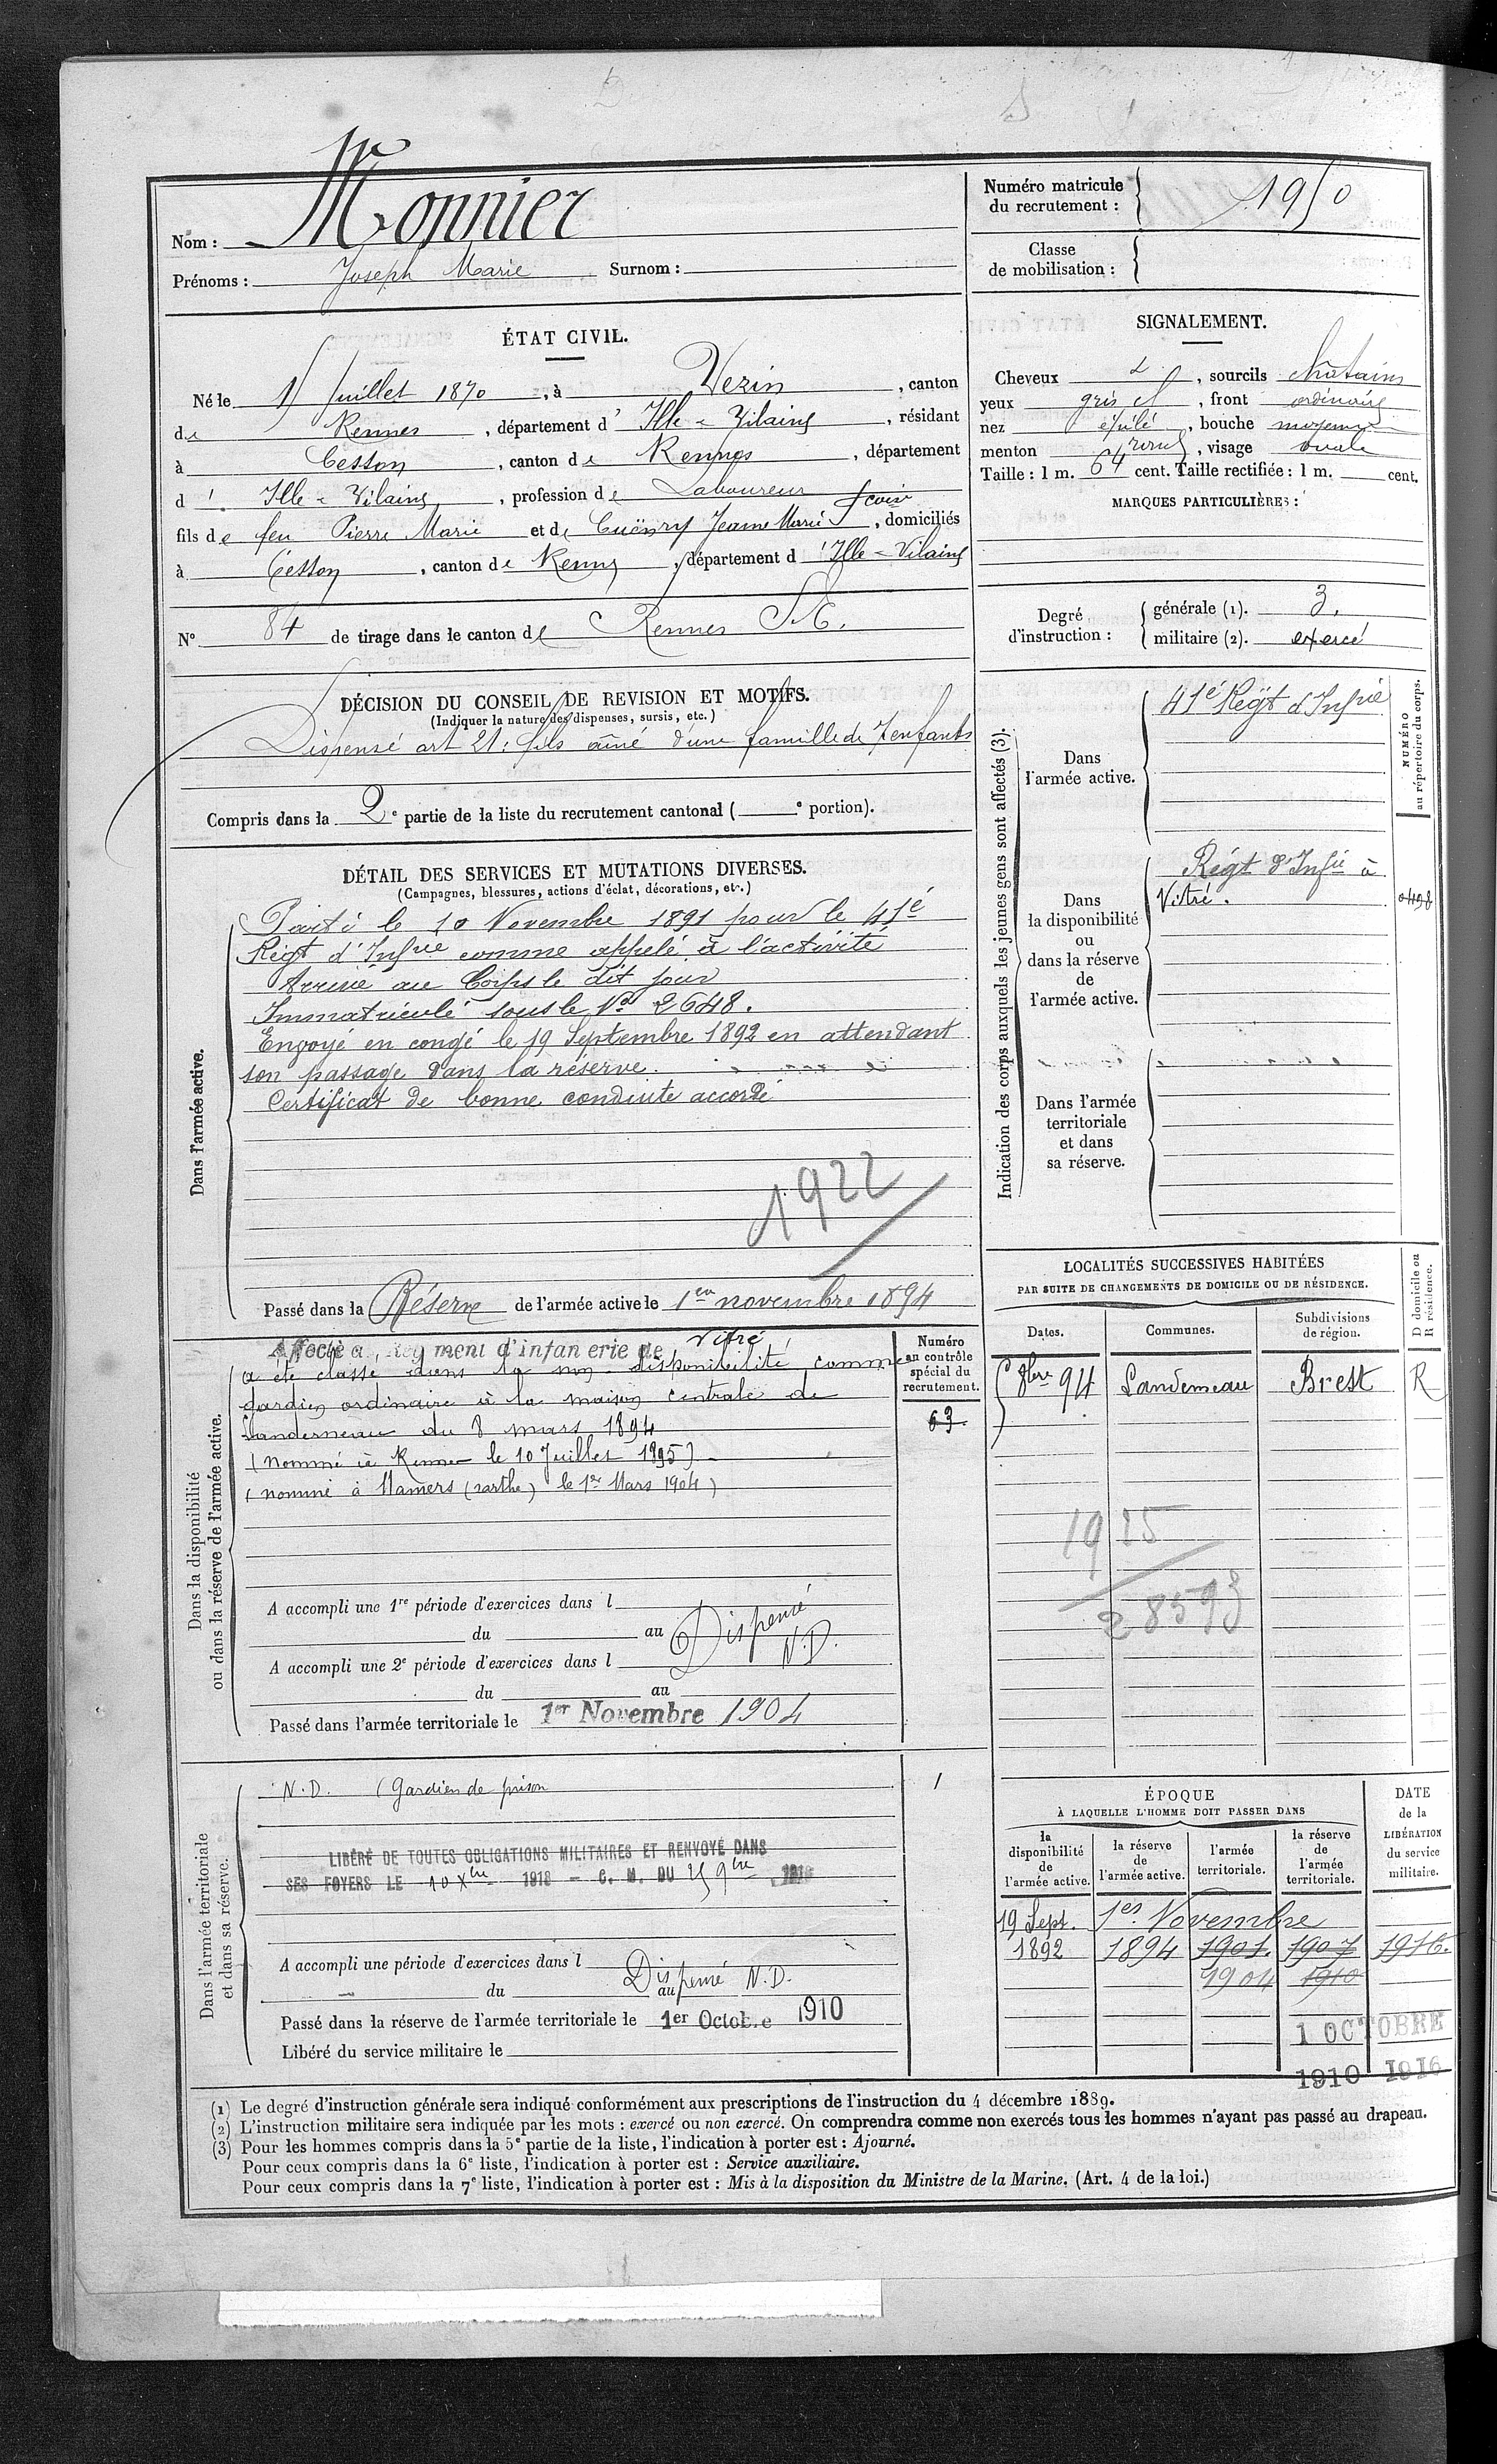 Nom : Monnier
Prénoms : Joseph Marie Surnom :
Numéro matricule du recrutement : 1950
Classe de mobilisation :
ÉTAT CIVIL.
Né le 15 Juillet 1870, à Vezin, canton
de Rennes, département d' Ille-&-Vilaine, résidant
à Cesson, canton de Rennes, département
d' Ille-&-Vilaine, profession de Laboureur
fils de feu Pierre Marie et de Cuënry Jeanne Marie, domiciliés
à Cesson, canton de Rennes, département d' Ille-&-Vilaine
N° 84 de tirage dans le canton de Rennes S.E.
SIGNALEMENT.
Cheveux &, sourcils châtains
yeux gris, front ordinaire
nez épilé, bouche moyenne
menton rond, visage ovale
Taille : 1 m. 64 cent. Taille rectifiée : 1 m. cent.
MARQUES PARTICULIÈRES :
Degré d'instruction :
générale (1). 3.
militaire (2). exercé
DÉCISION DU CONSEIL DE REVISION ET MOTIFS.
(Indiquer la nature des dispenses, sursis, etc.)
Dispensé art 21 : fils aîné d'une famille de 7 enfants
Compris dans la 2e partie de la liste du recrutement cantonal ( e portion).
DÉTAIL DES SERVICES ET MUTATIONS DIVERSES.
(Campagnes, blessures, actions d'éclat, décorations, etc.)
Dans l'armée active.
Parti le 10 Novembre 1891 pour le 41e
Régt d'Infrie comme appelé à l'activité
Arrivé au Corps le dit jour
Immatriculé sous le No 2648.
Envoyé en congé le 19 Septembre 1892 en attendant
son passage dans la réserve.
Certificat de bonne conduite accordé
1922
Passé dans la Réserve de l'armée active le 1er novembre 1894
Indication des corps auxquels les jeunes gens sont affectés (3).
NUMÉRO au répertoire du corps.
Dans l'armée active.
41e Régt d'Infrie
Dans la disponibilité ou dans la réserve de l'armée active.
Régt d'Infie à
Vitré.
0498
Dans l'armée territoriale et dans sa réserve.
LOCALITÉS SUCCESSIVES HABITÉES
PAR SUITE DE CHANGEMENTS DE DOMICILE OU DE RÉSIDENCE.
D domicile ou R résidence.
Dates. Communes. Subdivisions de région.
8bre 94 Landerneau Brest R
1925
28593
Dans la disponibilité ou dans la réserve de l'armée active.
Numéro au contrôle spécial du recrutement.
63
Affecté au Régiment d'infanterie de Vitré
a été classé dans la non-disponibilité comme
gardien ordinaire à la maison centrale de
Landerneau du 8 mars 1894
(nommé à Rennes le 10 Juillet 1895)
(nommé à Mamers (Sarthe) le 1er Mars 1904)
A accompli une 1re période d'exercices dans l
du au
Dispensé
N.D.
A accompli une 2e période d'exercices dans l
du au
Passé dans l'armée territoriale le 1er Novembre 1904
Dans l'armée territoriale et dans sa réserve.
N.D. (Gardien de prison 1
LIBÉRÉ DE TOUTES OBLIGATIONS MILITAIRES ET RENVOYÉ DANS
SES FOYERS LE 10 Xbre 1918 - C. M. DU 25 9bre 1918
A accompli une période d'exercices dans l
du au Dispensé N.D.
Passé dans la réserve de l'armée territoriale le 1er Octobre 1910
Libéré du service militaire le
ÉPOQUE
À LAQUELLE L'HOMME DOIT PASSER DANS
la disponibilité de l'armée active.
la réserve de l'armée active.
l'armée territoriale.
la réserve de l'armée territoriale.
DATE de la LIBÉRATION du service militaire.
19 Sept. 1er Novembre
1892 1894 1901. 1907 1916.
1904 1910
1 OCTOBRE
1910 1916
(1) Le degré d'instruction générale sera indiqué conformément aux prescriptions de l'instruction du 4 décembre 1889.
(2) L'instruction militaire sera indiquée par les mots : exercé ou non exercé. On comprendra comme non exercés tous les hommes n'ayant pas passé au drapeau.
(3) Pour les hommes compris dans la 5e partie de la liste, l'indication à porter est : Ajourné.
Pour ceux compris dans la 6e liste, l'indication à porter est : Service auxiliaire.
Pour ceux compris dans la 7e liste, l'indication à porter est : Mis à la disposition du Ministre de la Marine. (Art. 4 de la loi.)